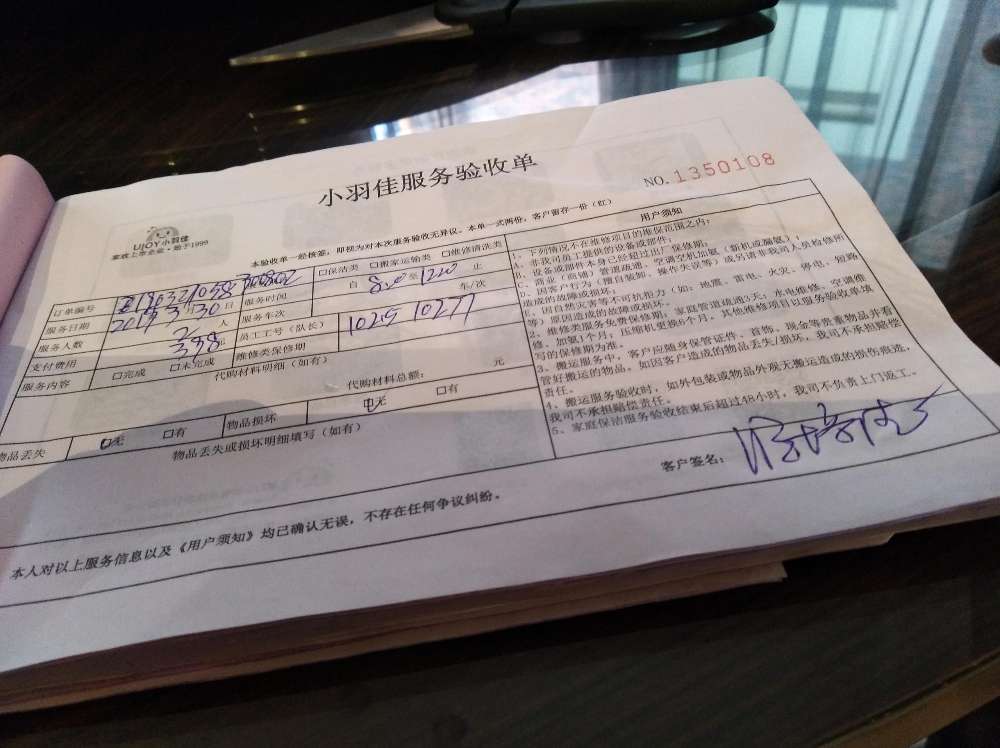 小羽佳服务验收单
NO. 1350108
UJOY小羽佳
家政上市企业·始于1999
本验收单一经核签,即视为对本次服务验收无异议。本单一式两份,客户留存一份(红)
订单编号
□保洁类 □搬家运输类 □维修清洗类
服务日期 2019年3月30日 服务时间 自 800 至 1220 止
服务人数 2 人 服务车次 车/次
支付费用 338 元 员工工号(队长) 10215 10277
服务内容 □完成 □未完成 维修类保修期
代购材料明细(如有)
代购材料总额: 元
物品丢失 □无 □有 物品损坏 □无 □有
物品丢失或损坏明细填写(如有)
用户须知
1、下列情况不在维修项目的维保范围之内:
A、非我司员工提供的设备或部件;
B、设备或部件本身已经超过出厂保修期;
C、商业(店铺)管道疏通、空调空机加氨(新机或漏氨);
D、因客户行为(擅自装卸、操作失误等)或另请非我司人员检修所
造成的故障或损坏;
E、因自然灾害等不可抗拒力(如:地震、雷电、火灾、停电、短路
等)原因造成的故障或损坏。
2、维修类服务免费保修期:家庭管道疏通3天;水电维修、空调维
修、加氨1个月;压缩机更换6个月,其他维修项目以服务验收单填
写的保修期为准。
3、搬运服务中,客户应随身保管证件、首饰、现金等贵重物品并看
管好搬运的物品,如因客户造成的物品丢失/损坏,我司不承担赔偿
责任。
4、搬运服务验收时,如外包装或物品外观无搬运造成的损伤痕迹,
我司不承担赔偿责任。
5、家庭保洁服务验收结束后超过48小时,我司不负责上门返工。
客户签名:
本人对以上服务信息以及《用户须知》均已确认无误,不存在任何争议纠纷。